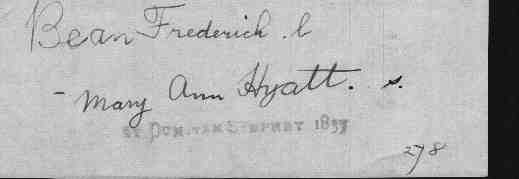 Bean Frederick . b
- Mary Ann Hyatt . s.
ST DUNSTAN STEPNEY 1837
278